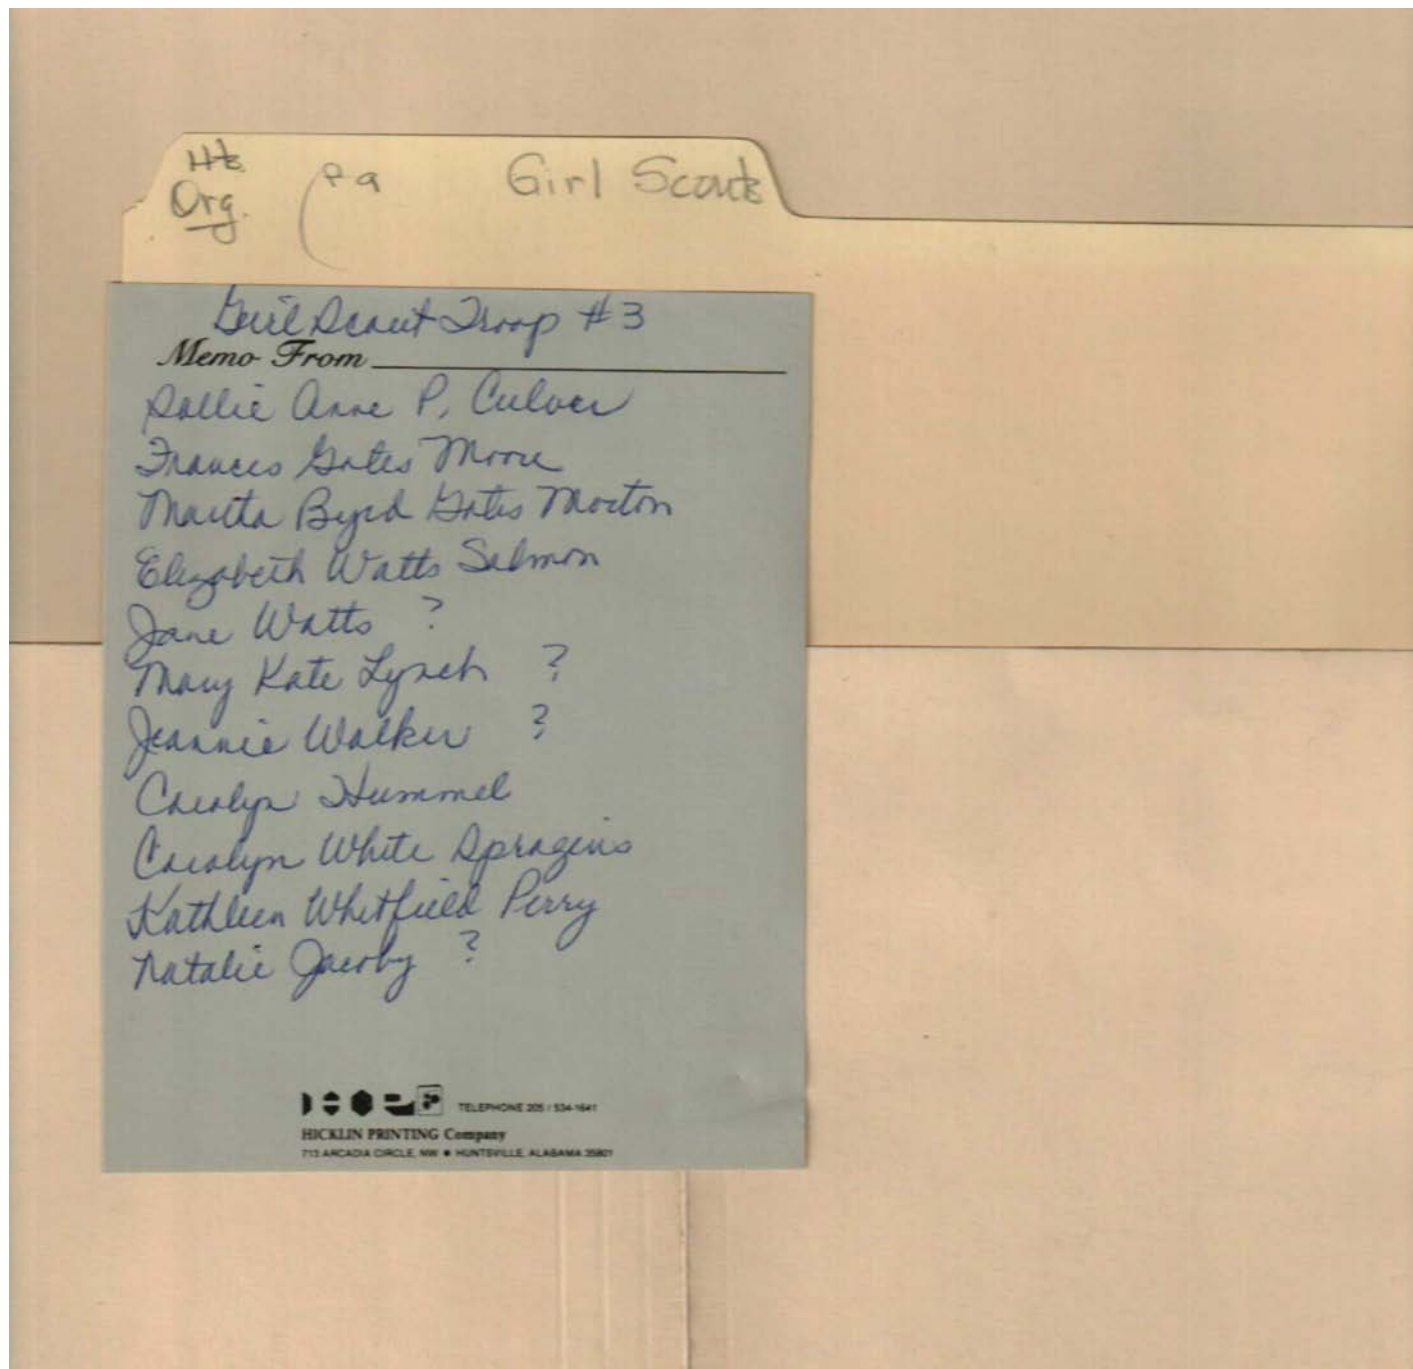 Hts.
Org.
Girl Scouts
Girl Scout Troop #3
Memo From
Sallie Anne P. Culver
Frances Gates Moore
Martha Byrd Gates Morton
Elizabeth Watts Salmon
Jane Watts ?
Mary Kate Lynch ?
Jeannie Walker ?
Carolyn Hummel
Carolyn White Spragins
Kathleen Whitfield Perry
Natalie Jacoby ?
TELEPHONE 205 / 534-1641
HICKLIN PRINTING Company
713 ARCADIA CIRCLE, NW ● HUNTSVILLE, ALABAMA 35801